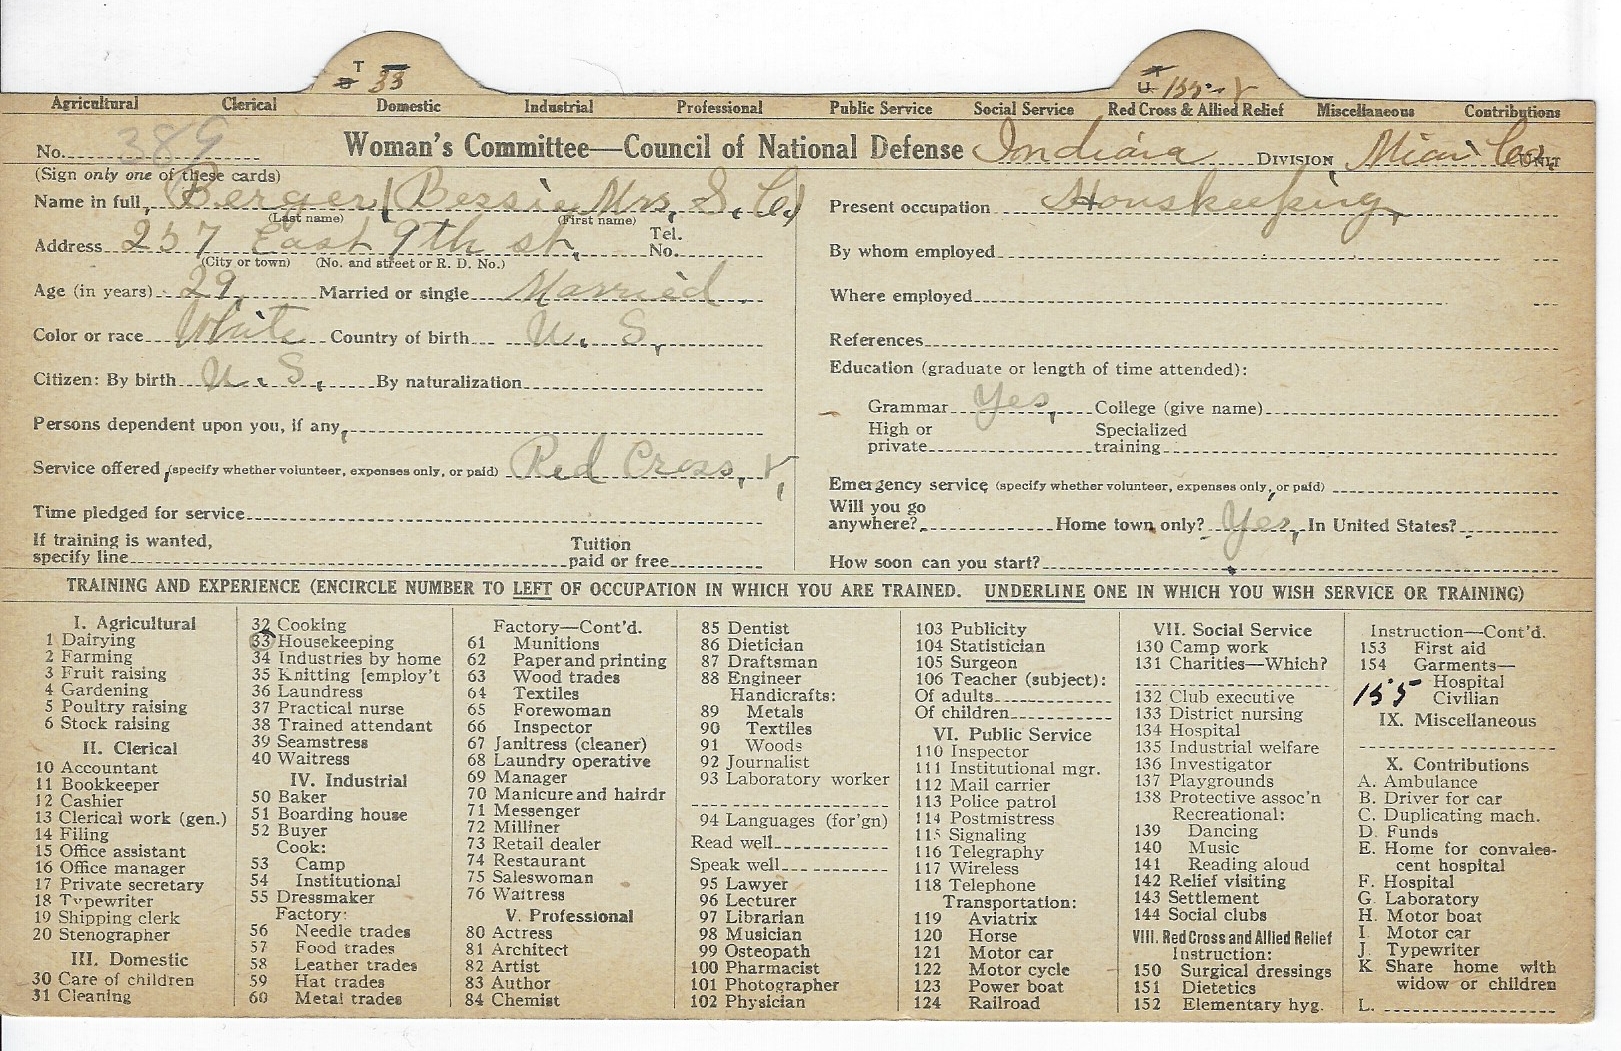 T 33
U 155-V
Agricultural Clerical Domestic Industrial Professional Public Service Social Service Red Cross & Allied Relief Miscellaneous Contributions
No. 389 Woman's Committee—Council of National Defense Indiana DIVISION Miami Co. UNIT
(Sign only one of these cards)
Name in full, Berger (Bessie Mrs. S. C.)
(Last name) (First name)
Address 257 East 9th st. Tel. No.
(City or town) (No. and street or R. D. No.)
Age (in years) 29 Married or single Married
Color or race White Country of birth U. S.
Citizen: By birth U. S. By naturalization
Persons dependent upon you, if any,
Service offered (specify whether volunteer, expenses only, or paid) Red Cross, V,
Time pledged for service
If training is wanted,
specify line Tuition paid or free
Present occupation Houskeeping,
By whom employed
Where employed
References
Education (graduate or length of time attended):
Grammar Yes, College (give name)
High or private Specialized training
Emergency service (specify whether volunteer, expenses only, or paid)
Will you go
anywhere? Home town only? Yes, In United States?
How soon can you start?
TRAINING AND EXPERIENCE (ENCIRCLE NUMBER TO LEFT OF OCCUPATION IN WHICH YOU ARE TRAINED. UNDERLINE ONE IN WHICH YOU WISH SERVICE OR TRAINING)
I. Agricultural
1 Dairying
2 Farming
3 Fruit raising
4 Gardening
5 Poultry raising
6 Stock raising
II. Clerical
10 Accountant
11 Bookkeeper
12 Cashier
13 Clerical work (gen.)
14 Filing
15 Office assistant
16 Office manager
17 Private secretary
18 Typewriter
19 Shipping clerk
20 Stenographer
III. Domestic
30 Care of children
31 Cleaning
32 Cooking
33 Housekeeping
34 Industries by home
35 Knitting [employ't
36 Laundress
37 Practical nurse
38 Trained attendant
39 Seamstress
40 Waitress
IV. Industrial
50 Baker
51 Boarding house
52 Buyer
Cook:
53 Camp
54 Institutional
55 Dressmaker
Factory:
56 Needle trades
57 Food trades
58 Leather trades
59 Hat trades
60 Metal trades
Factory—Cont'd.
61 Munitions
62 Paper and printing
63 Wood trades
64 Textiles
65 Forewoman
66 Inspector
67 Janitress (cleaner)
68 Laundry operative
69 Manager
70 Manicure and hairdr
71 Messenger
72 Milliner
73 Retail dealer
74 Restaurant
75 Saleswoman
76 Waitress
V. Professional
80 Actress
81 Architect
82 Artist
83 Author
84 Chemist
85 Dentist
86 Dietician
87 Draftsman
88 Engineer
Handicrafts:
89 Metals
90 Textiles
91 Woods
92 Journalist
93 Laboratory worker
94 Languages (for'gn)
Read well
Speak well
95 Lawyer
96 Lecturer
97 Librarian
98 Musician
99 Osteopath
100 Pharmacist
101 Photographer
102 Physician
103 Publicity
104 Statistician
105 Surgeon
106 Teacher (subject):
Of adults
Of children
VI. Public Service
110 Inspector
111 Institutional mgr.
112 Mail carrier
113 Police patrol
114 Postmistress
115 Signaling
116 Telegraphy
117 Wireless
118 Telephone
Transportation:
119 Aviatrix
120 Horse
121 Motor car
122 Motor cycle
123 Power boat
124 Railroad
VII. Social Service
130 Camp work
131 Charities—Which?
132 Club executive
133 District nursing
134 Hospital
135 Industrial welfare
136 Investigator
137 Playgrounds
138 Protective assoc'n
Recreational:
139 Dancing
140 Music
141 Reading aloud
142 Relief visiting
143 Settlement
144 Social clubs
VIII. Red Cross and Allied Relief
Instruction:
150 Surgical dressings
151 Dietetics
152 Elementary hyg.
Instruction—Cont'd.
153 First aid
154 Garments—
Hospital
155 Civilian
IX. Miscellaneous
X. Contributions
A. Ambulance
B. Driver for car
C. Duplicating mach.
D. Funds
E. Home for convales-
cent hospital
F. Hospital
G. Laboratory
H. Motor boat
I. Motor car
J. Typewriter
K Share home with
widow or children
L.